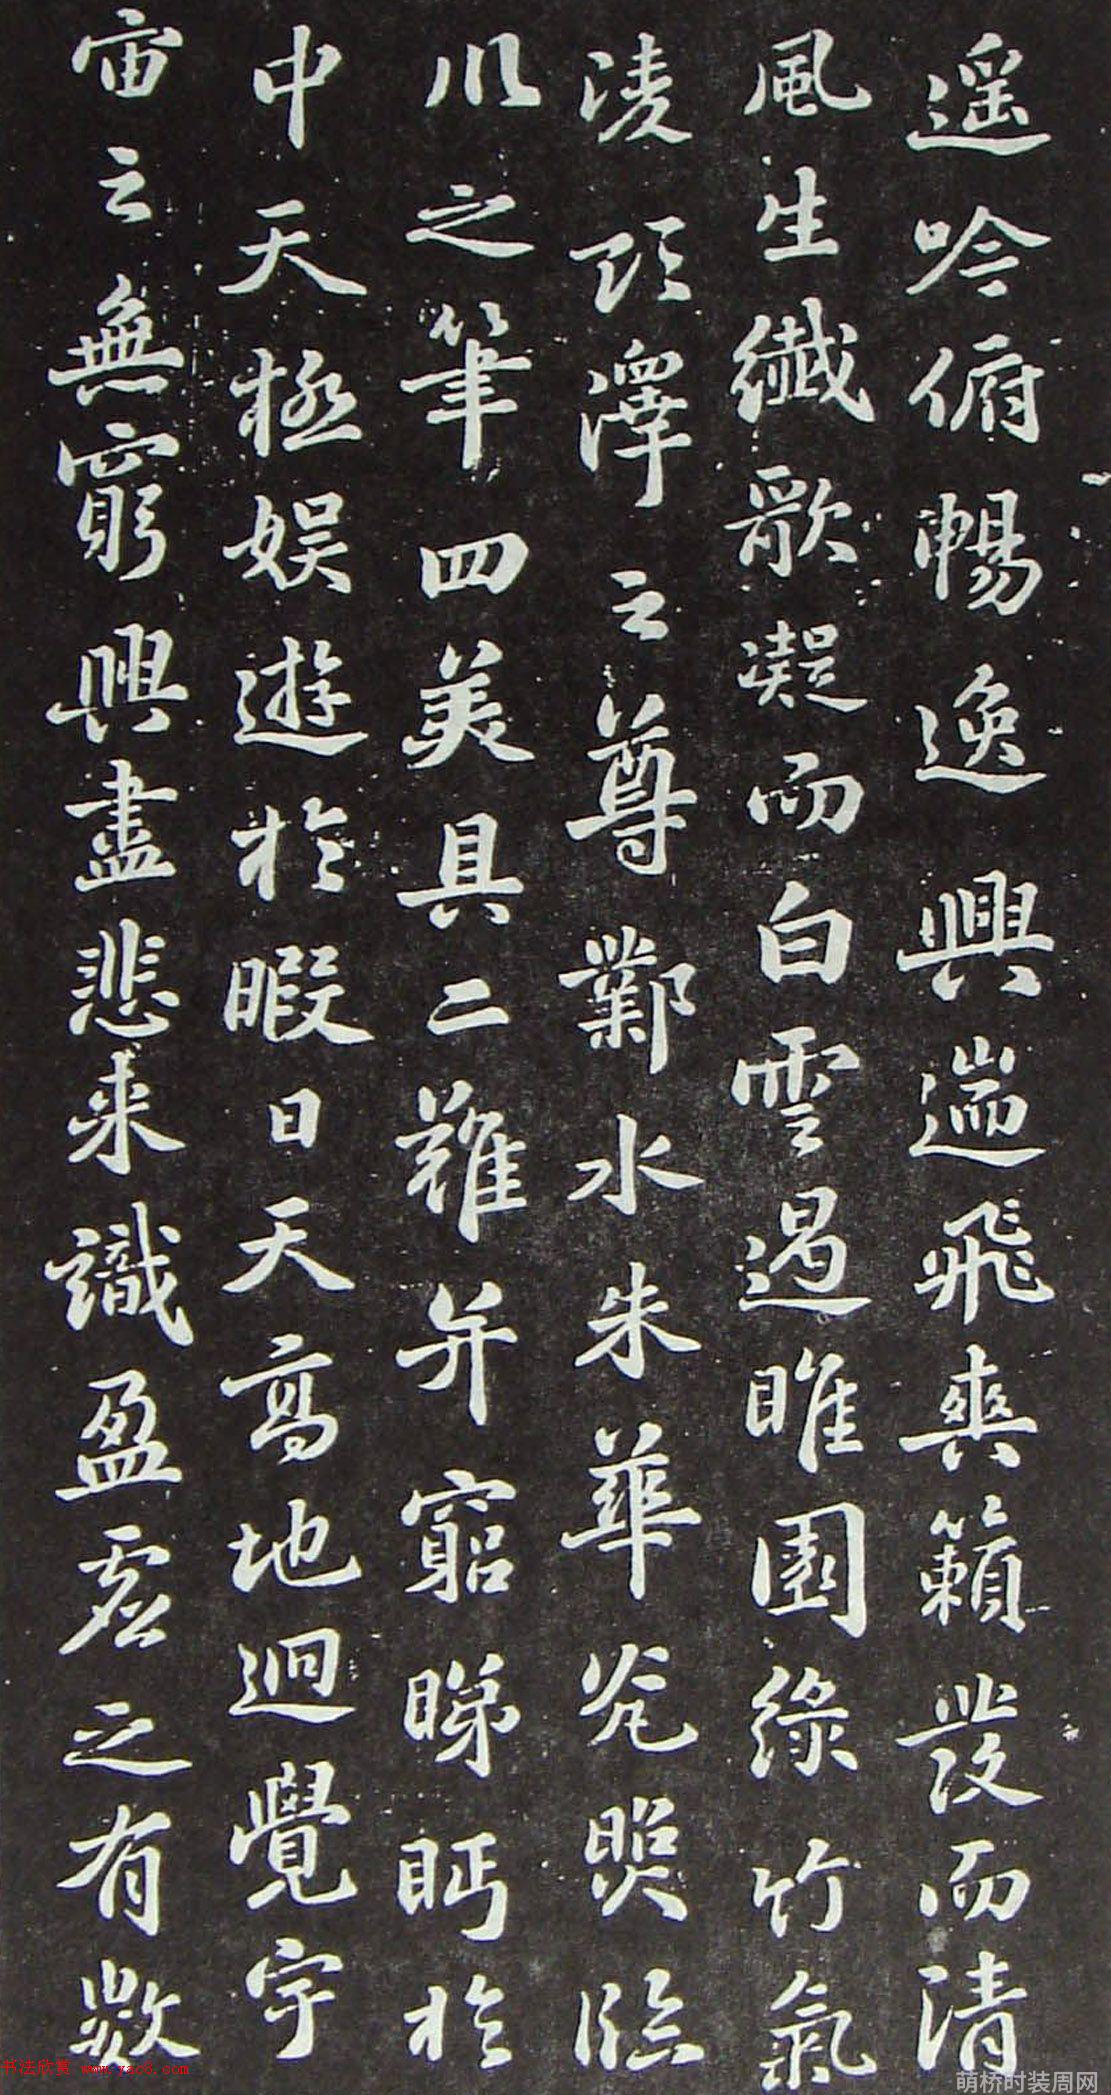 遥吟俯暢逸興遄飛爽籟發而清
風生纖歌凝而白雲遏睢園綠竹氣
淩彭澤之尊鄴水朱華光照臨
川之筆四美具二難并窮睇眄於
中天極娛遊於暇日天高地迥覺宇
宙之無窮興盡悲来識盈虛之有數
书法欣赏 www.yac8.com
萌桥时装周网